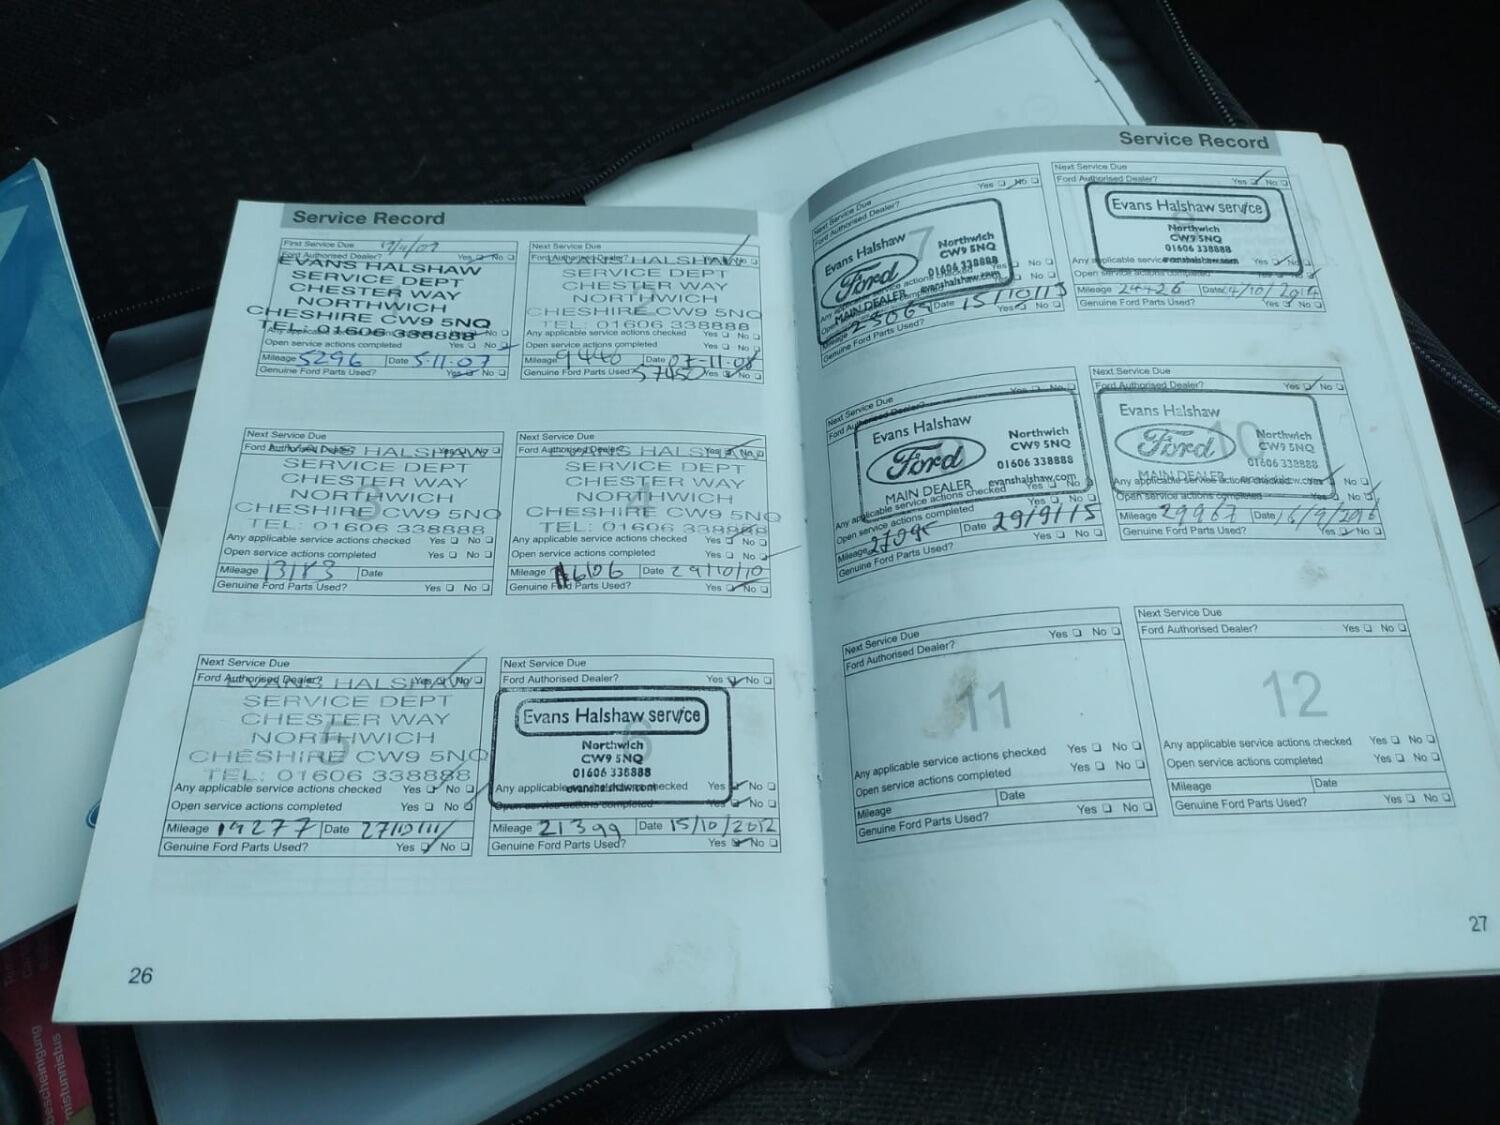 Service Record
First Service Due
Ford Authorised Dealer? Yes No
EVANS HALSHAW
SERVICE DEPT
CHESTER WAY
NORTHWICH
CHESHIRE CW9 5NQ
TEL: 01606 338888
Any applicable service actions checked Yes No
Open service actions completed Yes No
Mileage 5296 Date 5.11.07
Genuine Ford Parts Used? Yes No
Next Service Due
Ford Authorised Dealer? Yes No
EVANS HALSHAW
SERVICE DEPT
CHESTER WAY
NORTHWICH
CHESHIRE CW9 5NQ
TEL: 01606 338888
Any applicable service actions checked Yes No
Open service actions completed Yes No
Mileage 9446 Date 07-11-08
Genuine Ford Parts Used? 57450 Yes No
Next Service Due
Ford Authorised Dealer? Yes No
EVANS HALSHAW
SERVICE DEPT
CHESTER WAY
NORTHWICH
CHESHIRE CW9 5NQ
TEL: 01606 338888
3
Any applicable service actions checked Yes No
Open service actions completed Yes No
Mileage 13183 Date
Genuine Ford Parts Used? Yes No
Next Service Due
Ford Authorised Dealer? Yes No
EVANS HALSHAW
SERVICE DEPT
CHESTER WAY
NORTHWICH
CHESHIRE CW9 5NQ
TEL: 01606 338888
4
Any applicable service actions checked Yes No
Open service actions completed Yes No
Mileage 16606 Date 29/10/10
Genuine Ford Parts Used? Yes No
Next Service Due
Ford Authorised Dealer? Yes No
EVANS HALSHAW
SERVICE DEPT
CHESTER WAY
NORTHWICH
CHESHIRE CW9 5NQ
TEL: 01606 338888
5
Any applicable service actions checked Yes No
Open service actions completed Yes No
Mileage 19277 Date 27/10/11
Genuine Ford Parts Used? Yes No
Next Service Due
Ford Authorised Dealer? Yes No
Evans Halshaw service
Northwich
CW9 5NQ
01606 338888
evanshalshaw.com
6
Any applicable service actions checked Yes No
Open service actions completed Yes No
Mileage 21399 Date 15/10/2012
Genuine Ford Parts Used? Yes No
26
Service Record
Next Service Due
Ford Authorised Dealer? Yes No
Evans Halshaw
Ford
MAIN DEALER
Northwich
CW9 5NQ
01606 338888
evanshalshaw.com
7
Yes No
Yes No
Date 15/10/13
Genuine Ford Parts Used? Yes No
Next Service Due
Ford Authorised Dealer? Yes No
Evans Halshaw service
Northwich
CW9 5NQ
01606 338888
evanshalshaw.com
Any applicable service actions checked Yes No
Open service actions completed Yes No
Mileage 24426 Date 14/10/2014
Genuine Ford Parts Used? Yes No
Next Service Due
Ford Authorised Dealer? Yes No
Evans Halshaw
Ford
MAIN DEALER
Northwich
CW9 5NQ
01606 338888
evanshalshaw.com
Any applicable service actions checked Yes No
Open service actions completed Yes No
Mileage 27095 Date 29/9/15
Genuine Ford Parts Used? Yes No
Next Service Due
Ford Authorised Dealer? Yes No
Evans Halshaw
Ford
MAIN DEALER
Northwich
CW9 5NQ
01606 338888
evanshalshaw.com
10
Any applicable service actions checked Yes No
Open service actions completed Yes No
Mileage 29967 Date 16/9/2016
Genuine Ford Parts Used? Yes No
Next Service Due
Ford Authorised Dealer? Yes No
11
Any applicable service actions checked Yes No
Open service actions completed Yes No
Mileage Date
Genuine Ford Parts Used? Yes No
Next Service Due
Ford Authorised Dealer? Yes No
12
Any applicable service actions checked Yes No
Open service actions completed Yes No
Mileage Date
Genuine Ford Parts Used? Yes No
27